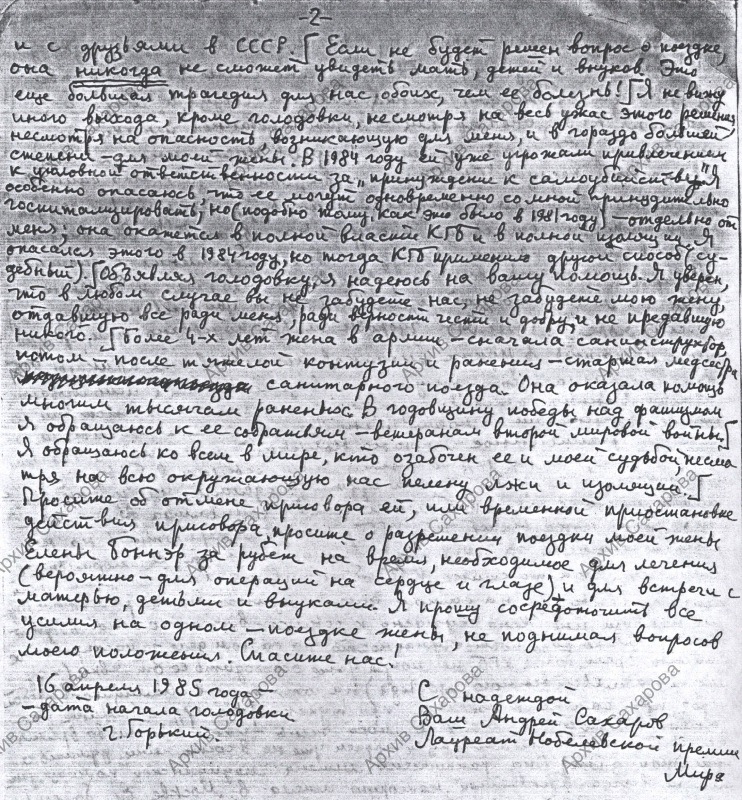 -2-
и с друзьями в СССР. [Если не будет решен вопрос о поездке,
она никогда не сможет увидеть мать, детей и внуков. Это
еще большая трагедия для нас обоих, чем ее болезнь! [Я не вижу
иного выхода, кроме голодовки, несмотря на весь ужас этого решения
несмотря на опасность, возникающую для меня, и в гораздо большей
степени - для моей жены. В 1984 году ей уже угрожали привлечением
к уголовной ответственности за "принуждение к самоубийству". Я
особенно опасаюсь, что ее могут одновременно со мной принудительно
госпитализировать, но (подобно тому, как это было в 1981 году) - отдельно от
меня; она окажется в полной власти КГБ и в полной изоляции. Я
опасался этого в 1984 году, но тогда КГБ применило другой способ (су-
дебный). [Объявляя голодовку, я надеюсь на вашу помощь. Я уверен,
что в любом случае вы не забудете нас, не забудете мою жену,
отдавшую все ради меня, ради верности чести и добру, и не предавшую
никого. [Более 4-х лет жена в армии - сначала санинструктор,
потом - после тяжелой контузии и ранения - старшая медсестра
санитарного поезда. Она оказала помощь
многим тысячам раненных. В годовщину победы над фашизмом
я обращаюсь к ее собратьям - ветеранам второй мировой войны. [
Я обращаюсь ко всем в мире, кто озабочен ее и моей судьбой, несмо-
тря на всю окружающую нас пелену лжи и изоляции. [
Просите об отмене приговора ей, или временной приостановке
действия приговора, просите о разрешении поездки моей жены
Елены Боннэр за рубеж на время, необходимое для лечения
(вероятно - для операций на сердце и глазе) и для встречи с
матерью, детьми и внуками. Я прошу сосредоточить все
усилия на одном - поездке жены, не поднимая вопросов
моего положения. Спасите нас!
16 апреля 1985 года -
- дата начала голодовки
г. Горький.
С надеждой
Ваш Андрей Сахаров
Лауреат Нобелевской премии
Мира
Архив Сахарова